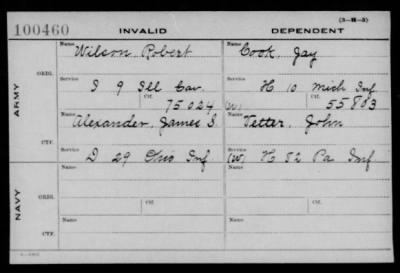 (3-H-3)
100460 INVALID DEPENDENT
Name Name
Wilson, Robert Cook, Jay
ORIG. Service Service
I 9 Ill Cav. H 10 Mich Inf
Ctf. 75024 (W) Ctf. 55803
ARMY
Name Name
Alexander, James S. Tetter, John
CTF. Service Service
D 29 Ohio Inf (W) H 52 Pa Inf
NAVY
Name Name
ORIG. Service Service
Ctf. Ctf.
Name Name
CTF.